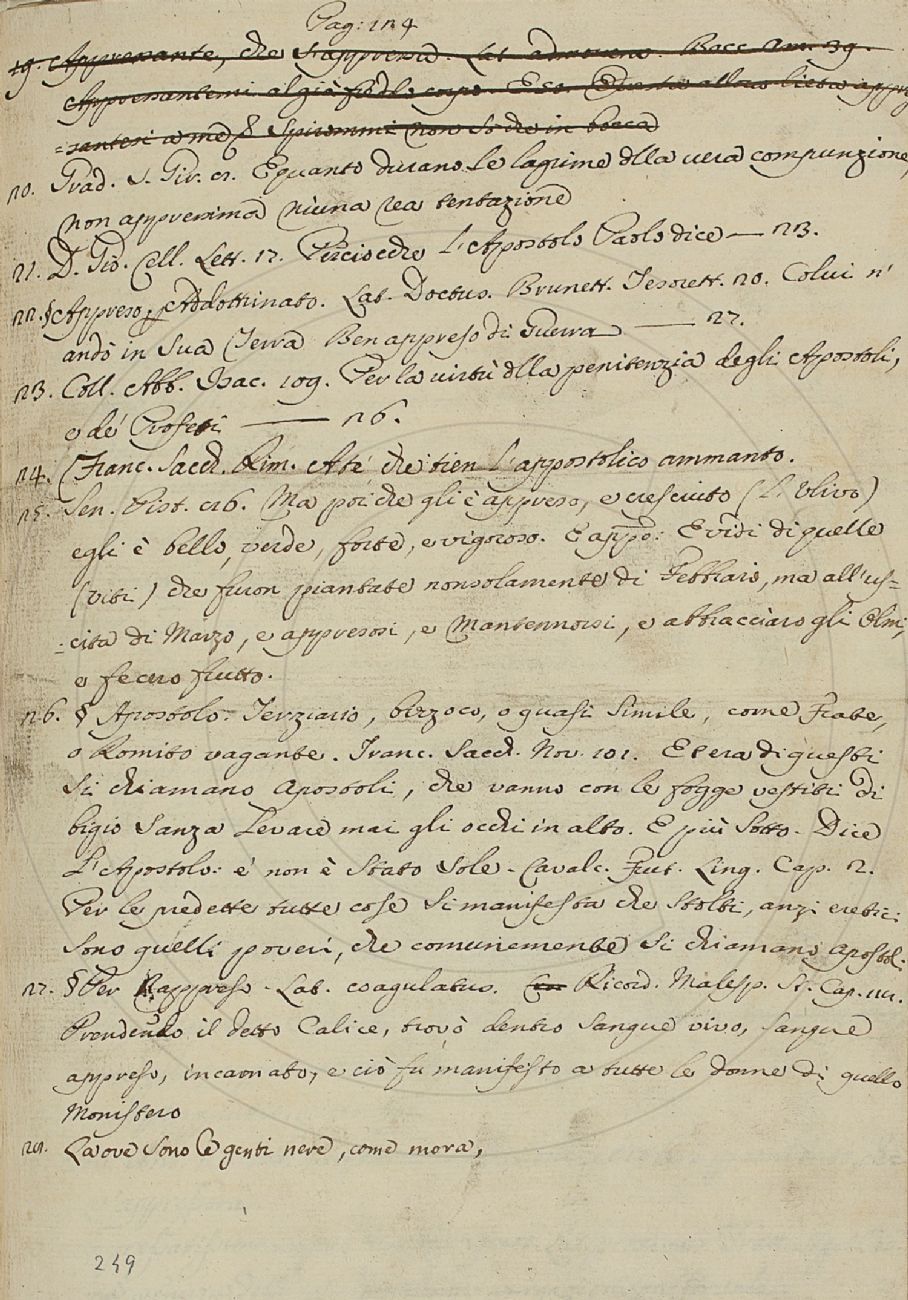 Pag: 124
19. Appressante, che s'appressa. Lat. admovens. Bocc. Am. 39.
Appressantemi al già freddo corpo. E 80. Essante alla lieta appres
=santesi a me
non so che in bocca
20. Grad. S. Gir. 21. E quanto durano le lagrime dlla vera compunzione,
non appressima niuna rea tentazione
21. D. Gio. Cell. Lett. 17. Perciocchè l'Apostolo Paolo dice — 23.
22. § Appreso, Addottrinato. Lat. Doctus. Brunett. Tesorett. 20. Colui n'
andò in Sua Terra Ben appreso di Guerra — 27.
23. Coll. Abb. Isac. 109. Per la virtù dlla penitenzia degli Apostoli,
e de' Profeti — 26.
24. Franc. Sacch. Rim. A te che tien l'appostolico ammanto.
25. Sen. Pist. 86. Ma poi che gli è appreso, e cresciuto (l'Ulivo)
egli è bello, verde, forte, e vigoroso. E appo: E vidi di quelle
(viti) che furon piantate nonsolamente di Febbraio, ma all'us=
=cita di Marzo, e appresosi, e Mantennorsi, e abbracciaro gli Olmi,
e fecero frutto.
26. § Apostolo. Terziario, bizzoco, o quasi simile, come Frate,
o Romito vagante. Franc. Sacch. Nov. 101. Et era di questi
si chiamano Apostoli, che vanno con le fogge vestiti di
bigio Sanza Levare mai gli occhi in alto. E più Sotto. Dice
l'Apostolo: e' non è Stato Sole. Cavalc. Frut. Ling. Cap. 2.
Per le predette tutte cose Si manifesta che Stolti, anzi eretici
sono quelli poveri, che comunemente si chiamano apostol.
27. § Per Rappreso. Lat. coagulatus. Ricord. Malesp. St. Cap. 111.
Prendendo il detto Calice, trovò dentro Sangue vivo, sangue
appreso, incarnato, e ciò fù manifesto a tutte le donne di quello
Monistero
28. La ove sono le genti nere, come mora,
249